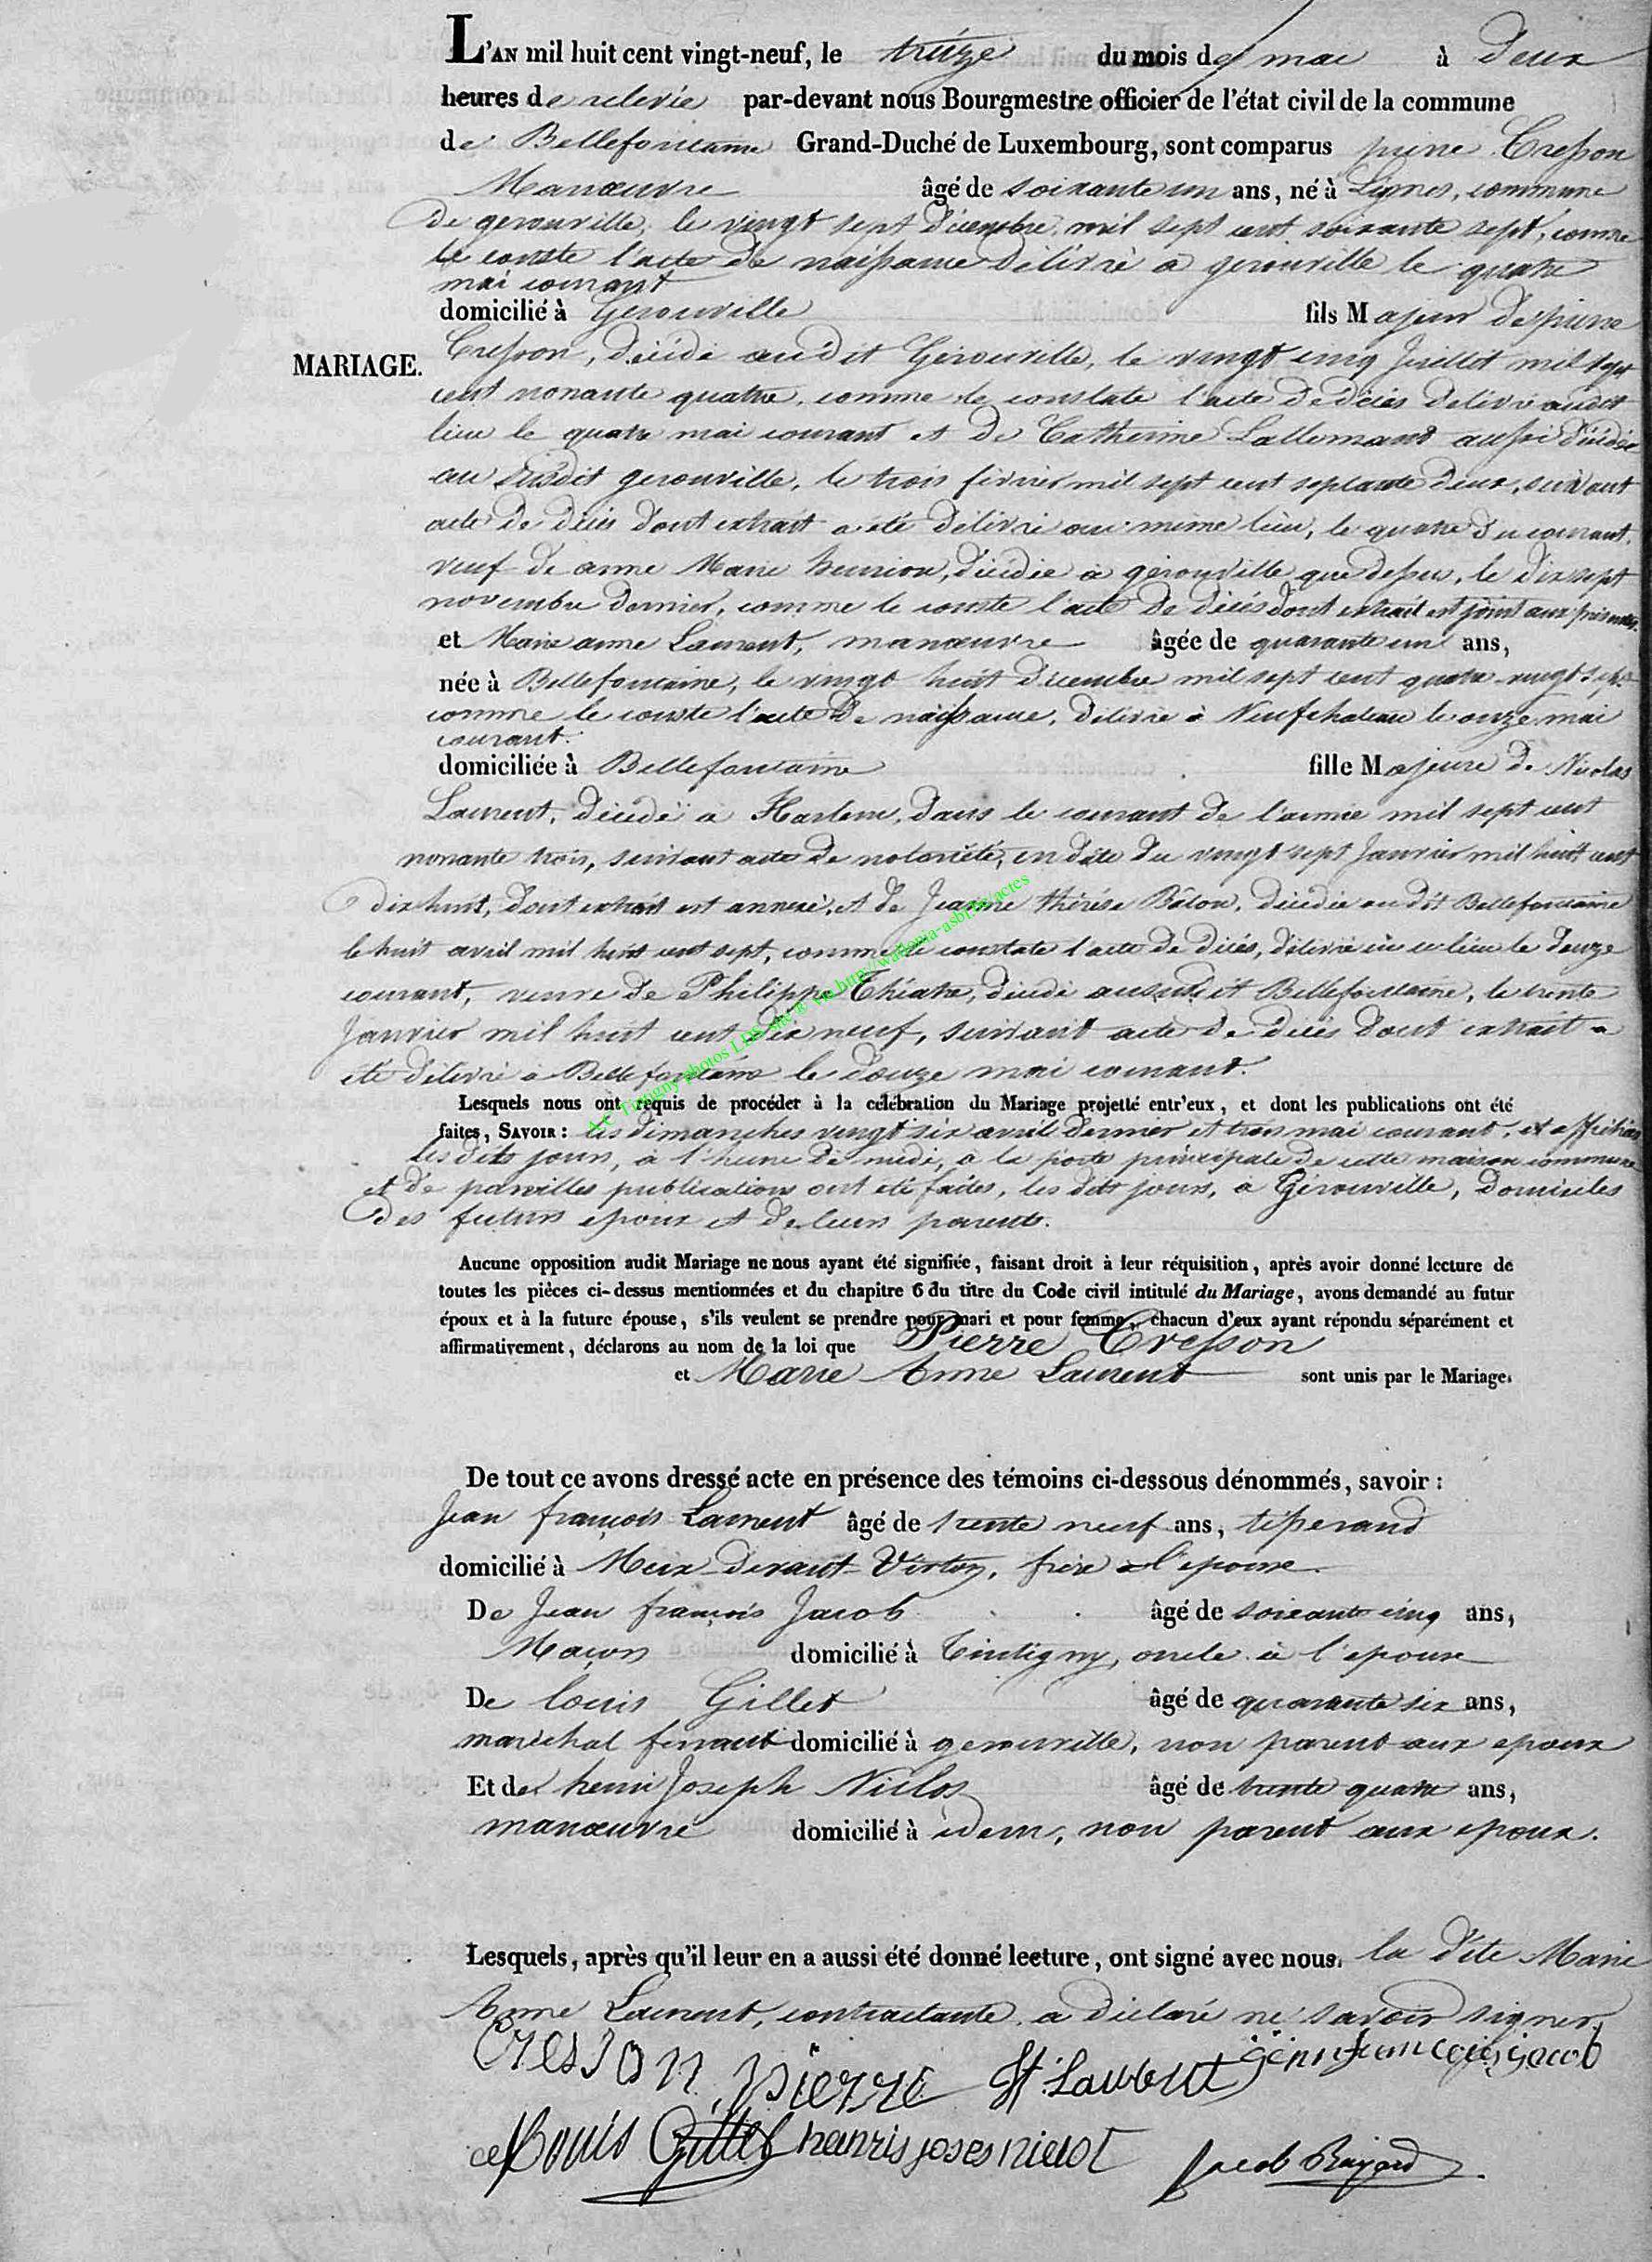 L'AN mil huit cent vingt-neuf, le treize du mois de mai à deux
heures de relevée par-devant nous Bourgmestre officier de l'état civil de la commune
de Bellefontaine Grand-Duché de Luxembourg, sont comparus pierre Cresson
Manœuvre âgé de soixante un ans, né à Limes, commune
de gerouville, le vingt sept décembre mil sept cent soixante sept, comme
le conste l'acte de naissance délivré à gerouville le quatre
mai courant
domicilié à Gerouville fils Majeur de pierre
MARIAGE.
Cresson, décédé audit Gérouville, le vingt cinq Juillet mil sept
cent nonante quatre, comme le constate l'acte de décès délivré audit
lieu le quatre mai courant et de Catherine Lallemand aussi décédée
au susdit gerouville, le trois février mil sept cent septante deux, suivant
acte de décès dont extrait a été délivré au même lieu, le quatre du courant.
veuf de anne Marie henrion, décédée à gérouville que dessus, le dix sept
novembre dernier, comme le conste l'acte de décès dont extrait est joint aux présentes.
et Marie anne Laurent, manœuvre âgée de quarante un ans,
née à Bellefontaine, le vingt huit décembre mil sept cent quatre-vingt sept
comme le conste l'acte de naissance, délivré à Neufchateau le onze mai
courant.
domiciliée à Bellefontaine fille Majeure de Nicolas
Laurent, décédé à Harlem, dans le courant de l'année mil sept cent
nonante trois, suivant acte de notoriété, en date du vingt sept Janvier mil huit cent
dix huit, dont extrait est annexé, et de Jeanne thérèse Bâlon, décédée audit Bellefontaine
le huit avril mil huit cent sept, comme le constate l'acte de décès, délivré en ce lieu le douze
courant, veuve de Philippe Théatre, décédé au susdit Bellefontaine, le trente
Janvier mil huit cent dix neuf, suivant acte de décès dont extrait a
été délivré à Bellefontaine le douze mai courant.
A.C. Tintigny photos LDS site © via http://wallonia-asbl.be/actes
Lesquels nous ont requis de procéder à la célébration du Mariage projetté entr'eux, et dont les publications ont été
faites, SAVOIR: les dimanches vingt six avril dernier et trois mai courant, et affichées
les dits jours, à l'heure de midi, à la porte principale de cette maison commune
et de pareilles publications ont été faites, les dits jours, à Gérouville, Domiciles
des futurs epoux et de leurs parents.
Aucune opposition audit Mariage ne nous ayant été signifiée, faisant droit à leur réquisition, après avoir donné lecture de
toutes les pièces ci-dessus mentionnées et du chapitre 6 du titre du Code civil intitulé du Mariage, avons demandé au futur
époux et à la future épouse, s'ils veulent se prendre pour mari et pour femme, chacun d'eux ayant répondu séparément et
affirmativement, déclarons au nom de la loi que Pierre Cresson
et Marie Anne Laurent sont unis par le Mariage.
De tout ce avons dressé acte en présence des témoins ci-dessous dénommés, savoir:
Jean françois Laurent âgé de trente neuf ans, tisserand
domicilié à Meix-Devant-Virton, frère à l'epouse.
De Jean françois Jacob âgé de soixante cinq ans,
Maçon domicilié à Tintigny, oncle à l'epouse
De louis Gillet âgé de quarante six ans,
maréchal ferrant domicilié à gerouville, non parent aux epoux
Et de henri Joseph Niclos âgé de trente quatre ans,
manœuvre domicilié à idem, non parent aux epoux.
Lesquels, après qu'il leur en a aussi été donné lecture, ont signé avec nous. la dite Marie
Anne Laurent, contractante, a déclaré ne savoir signer.
Cresson pierre Laurent jean francois jacob
Louis Gillet henris joses niclot Jacob